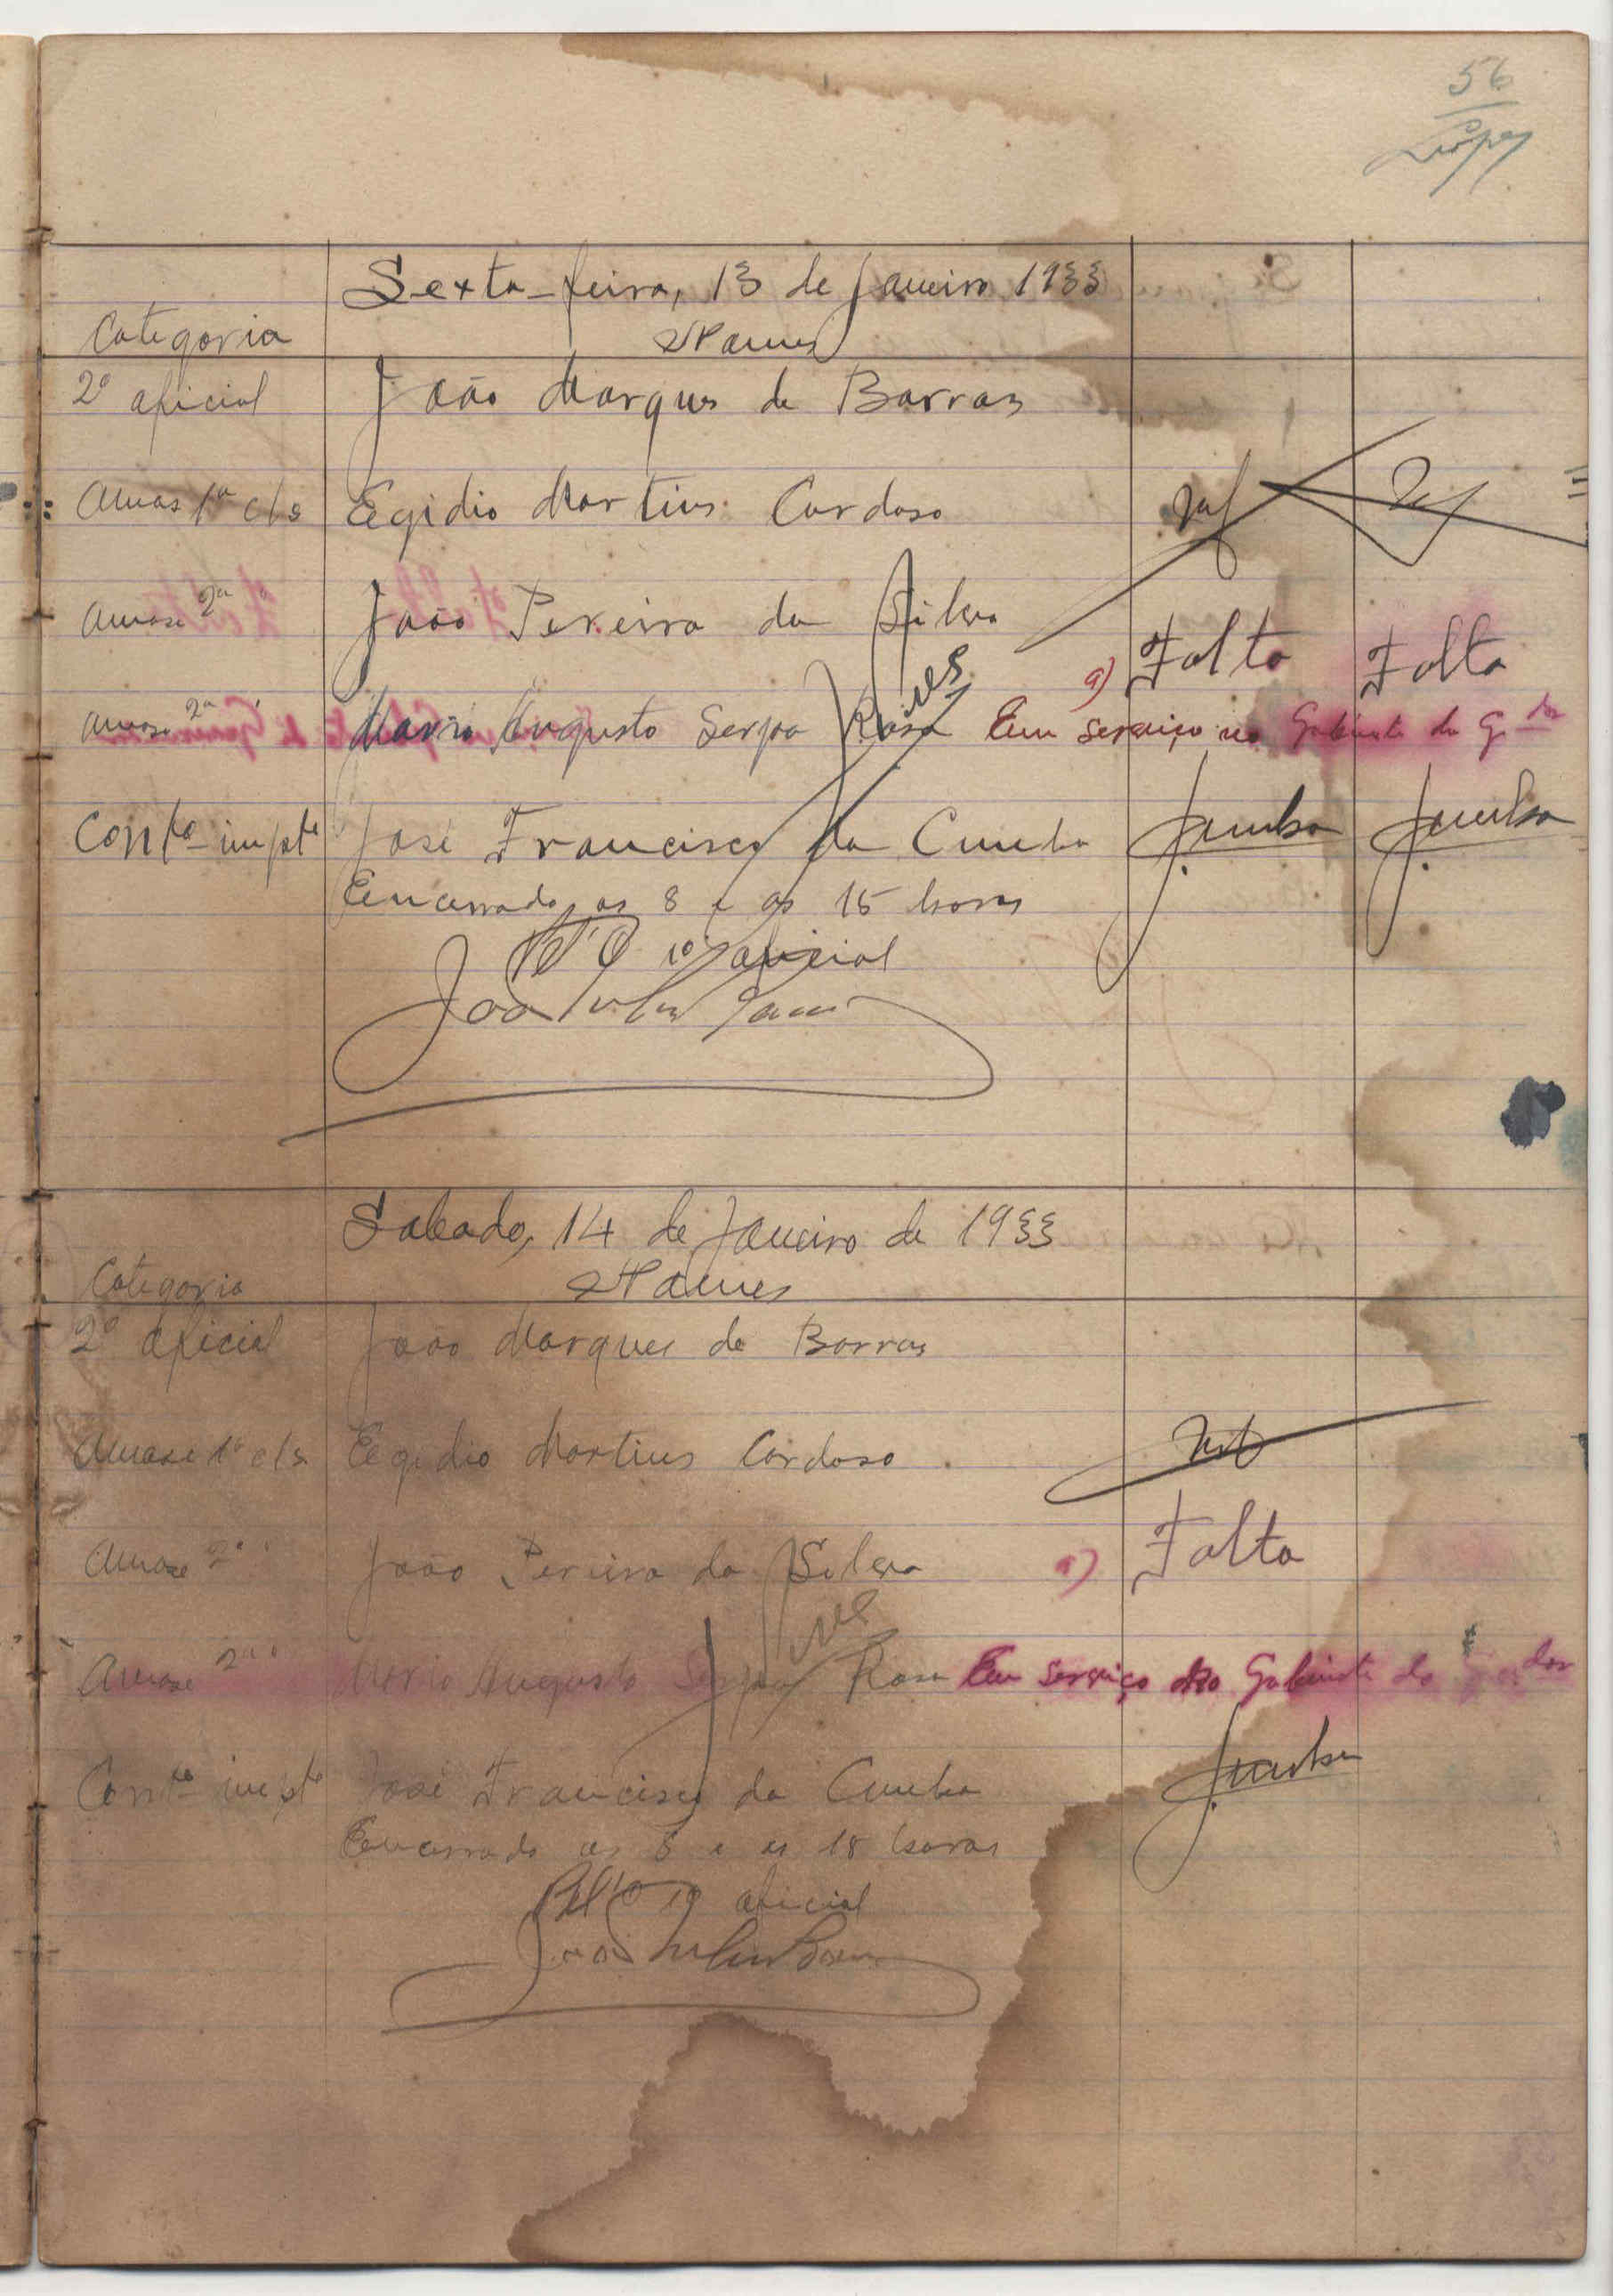 56
Lopes
Sexta-feira, 13 de Janeiro 1933
Categoria Nomes
2º oficial João Marques de Barros
Amas 1ª cls Egidio Martins Cardoso
Amase 2ª João Pereira da Silva a) Falta Falta
Amase 2ª Mario Augusto Serpa Rosa Em serviço no Gabinete do G.dor
Conto impte José Francisco da Cunha JCunha JCunha
Encerrado as 8 e as 15 horas
Pel'O 1º oficial
João
Sabado, 14 de Janeiro de 1933
Categoria Nomes
2º oficial João Marques de Barros
Amase 1ª cls Egidio Martins Cardoso
Amase 2ª João Pereira da Silva a) Falta
Amase 2ª Mario Augusto Serpa Rosa Em serviço no Gabinete do
Conto impto José Francisco da Cunha JCunha
Encerrado as 8 e as 18 horas
Pel'O 1º oficial
João